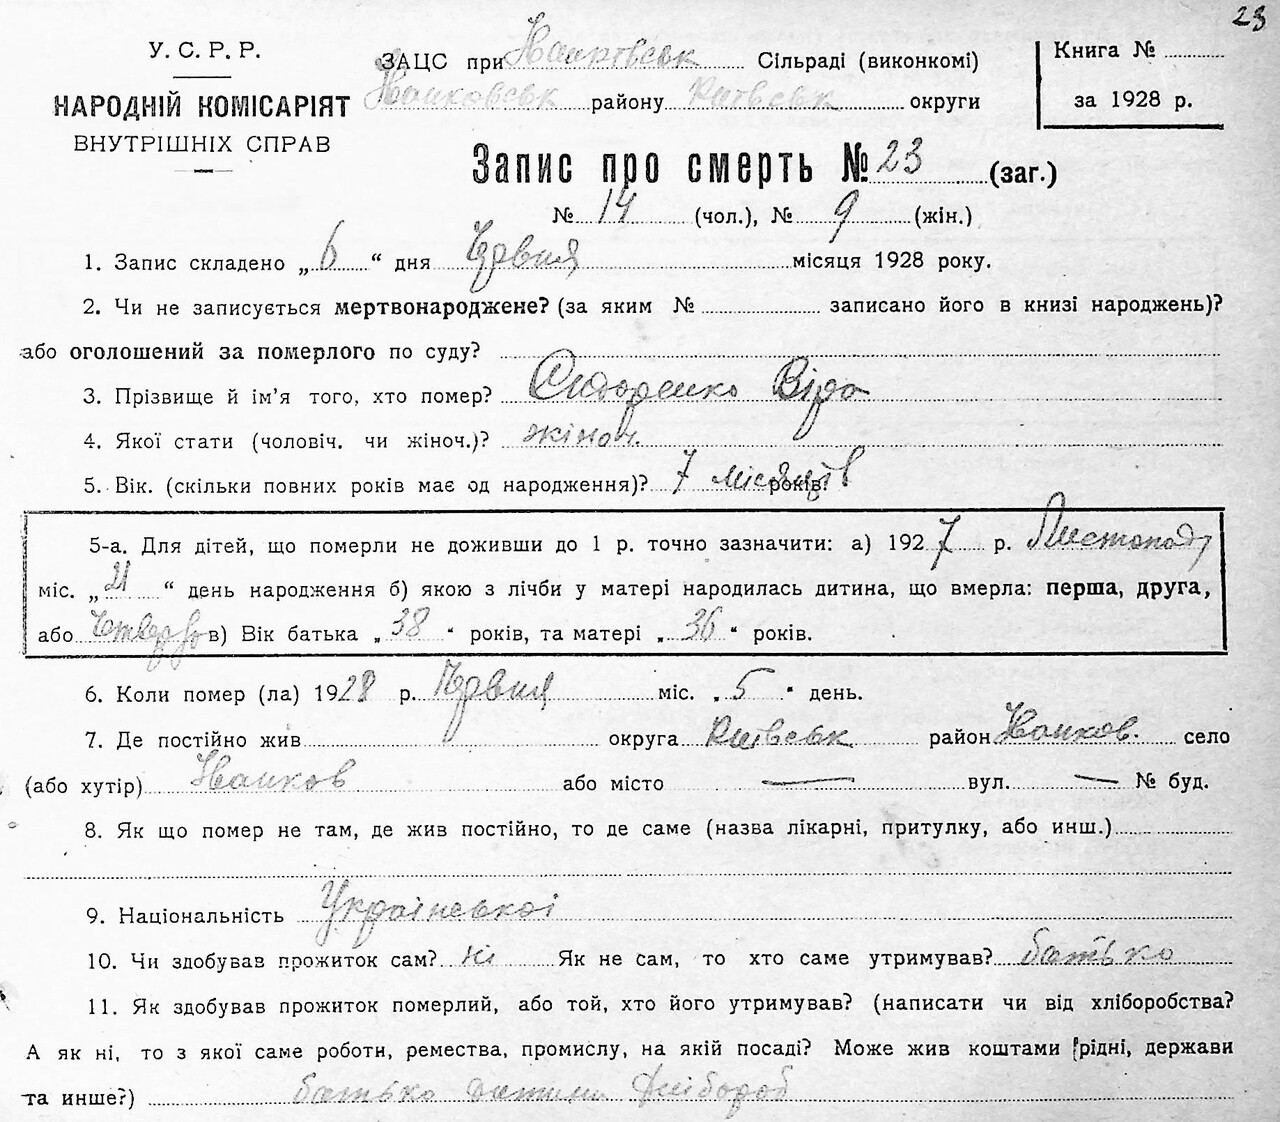 23
У. С. Р. Р.
НАРОДНІЙ КОМІСАРІЯТ
ВНУТРІШНІХ СПРАВ
ЗАЦС при Сільраді (виконкомі)
району Київськ округи
Книга №
за 1928 р.
Запис про смерть № 23 (заг.)
№ 14 (чол.), № 9 (жін.)
1. Запис складено „ 6 “ дня Червня місяця 1928 року.
2. Чи не записується мертвонароджене? (за яким № записано його в книзі народжень)?
або оголошений за померлого по суду?
3. Прізвище й ім'я того, хто помер? Сидоренко Віра
4. Якої стати (чоловіч. чи жіноч.)? жіноч.
5. Вік. (скільки повних років має од народження)? 7 місяців років.
5-а. Для дітей, що померли не доживши до 1 р. точно зазначити: а) 1927 р. Листопад
міс. „ 21 “ день народження б) якою з лічби у матері народилась дитина, що вмерла: перша, друга,
або Четверта в) Вік батька „ 38 “ років, та матері „ 36 “ років.
6. Коли помер (ла) 1928 р. Червня міс. „ 5 “ день.
7. Де постійно жив округа Київськ район село
(або хутір) або місто — вул. — № буд.
8. Як що помер не там, де жив постійно, то де саме (назва лікарні, притулку, або инш.)
9. Національність Української
10. Чи здобував прожиток сам? ні Як не сам, то хто саме утримував? батько
11. Як здобував прожиток померлий, або той, хто його утримував? (написати чи від хліборобства?
А як ні, то з якої саме роботи, ремества, промислу, на якій посаді? Може жив коштами рідні, держави
та инше?) батько дитини хлібороб